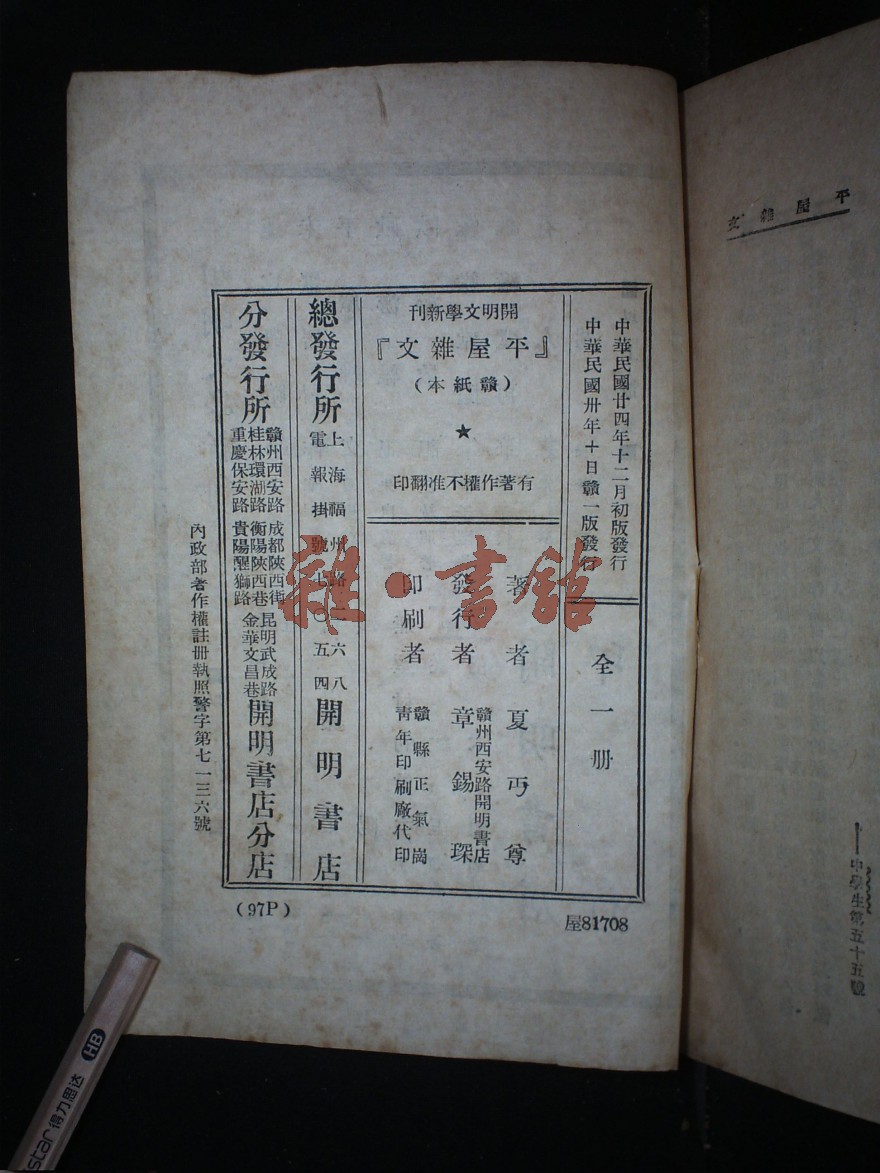 平屋雜文
——中學生第五十五號
中華民國廿四年十二月初版發行
中華民國卅年十日贛一版發行
全一册
開明文學新刊
『平屋雜文』
(贛紙本)
★
有著作權不准翻印
著者 夏丏尊
發行者 章錫琛
贛州西安路開明書店
印刷者 贛縣正氣崗
青年印刷廠代印
總發行所 上海福州路二六八
電報掛號七〇五四
開明書店
分發行所
贛州西安路 成都陝西街 昆明武成路
桂林環湖路 衡陽陝西巷 金華文昌巷
重慶保安路 貴陽醒獅路
開明書店分店
內政部著作權註册執照警字第七一三六號
(97P)
屋81708
雜·書館
star得力思达 HB